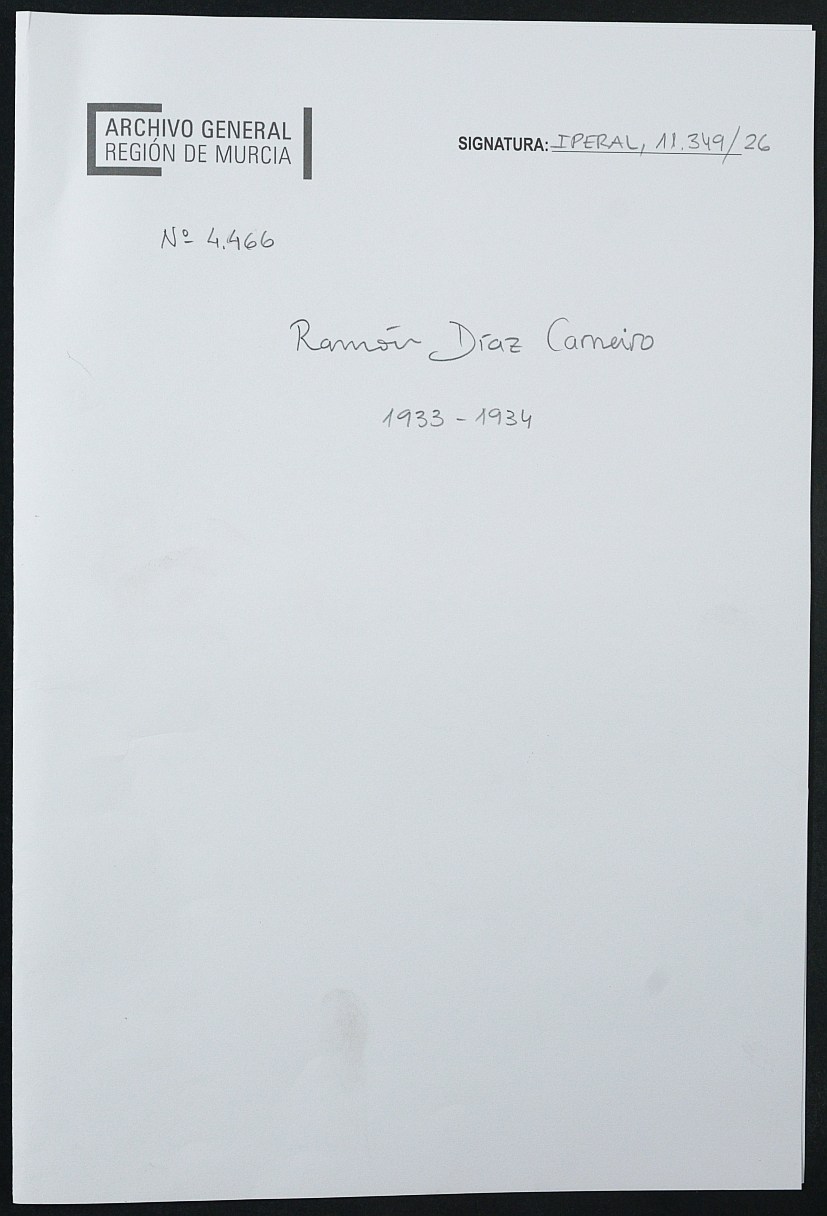 ARCHIVO GENERAL
REGIÓN DE MURCIA
SIGNATURA: IPERAL, 11.349/26
Nº 4.466
Ramón Díaz Carneiro
1933 - 1934